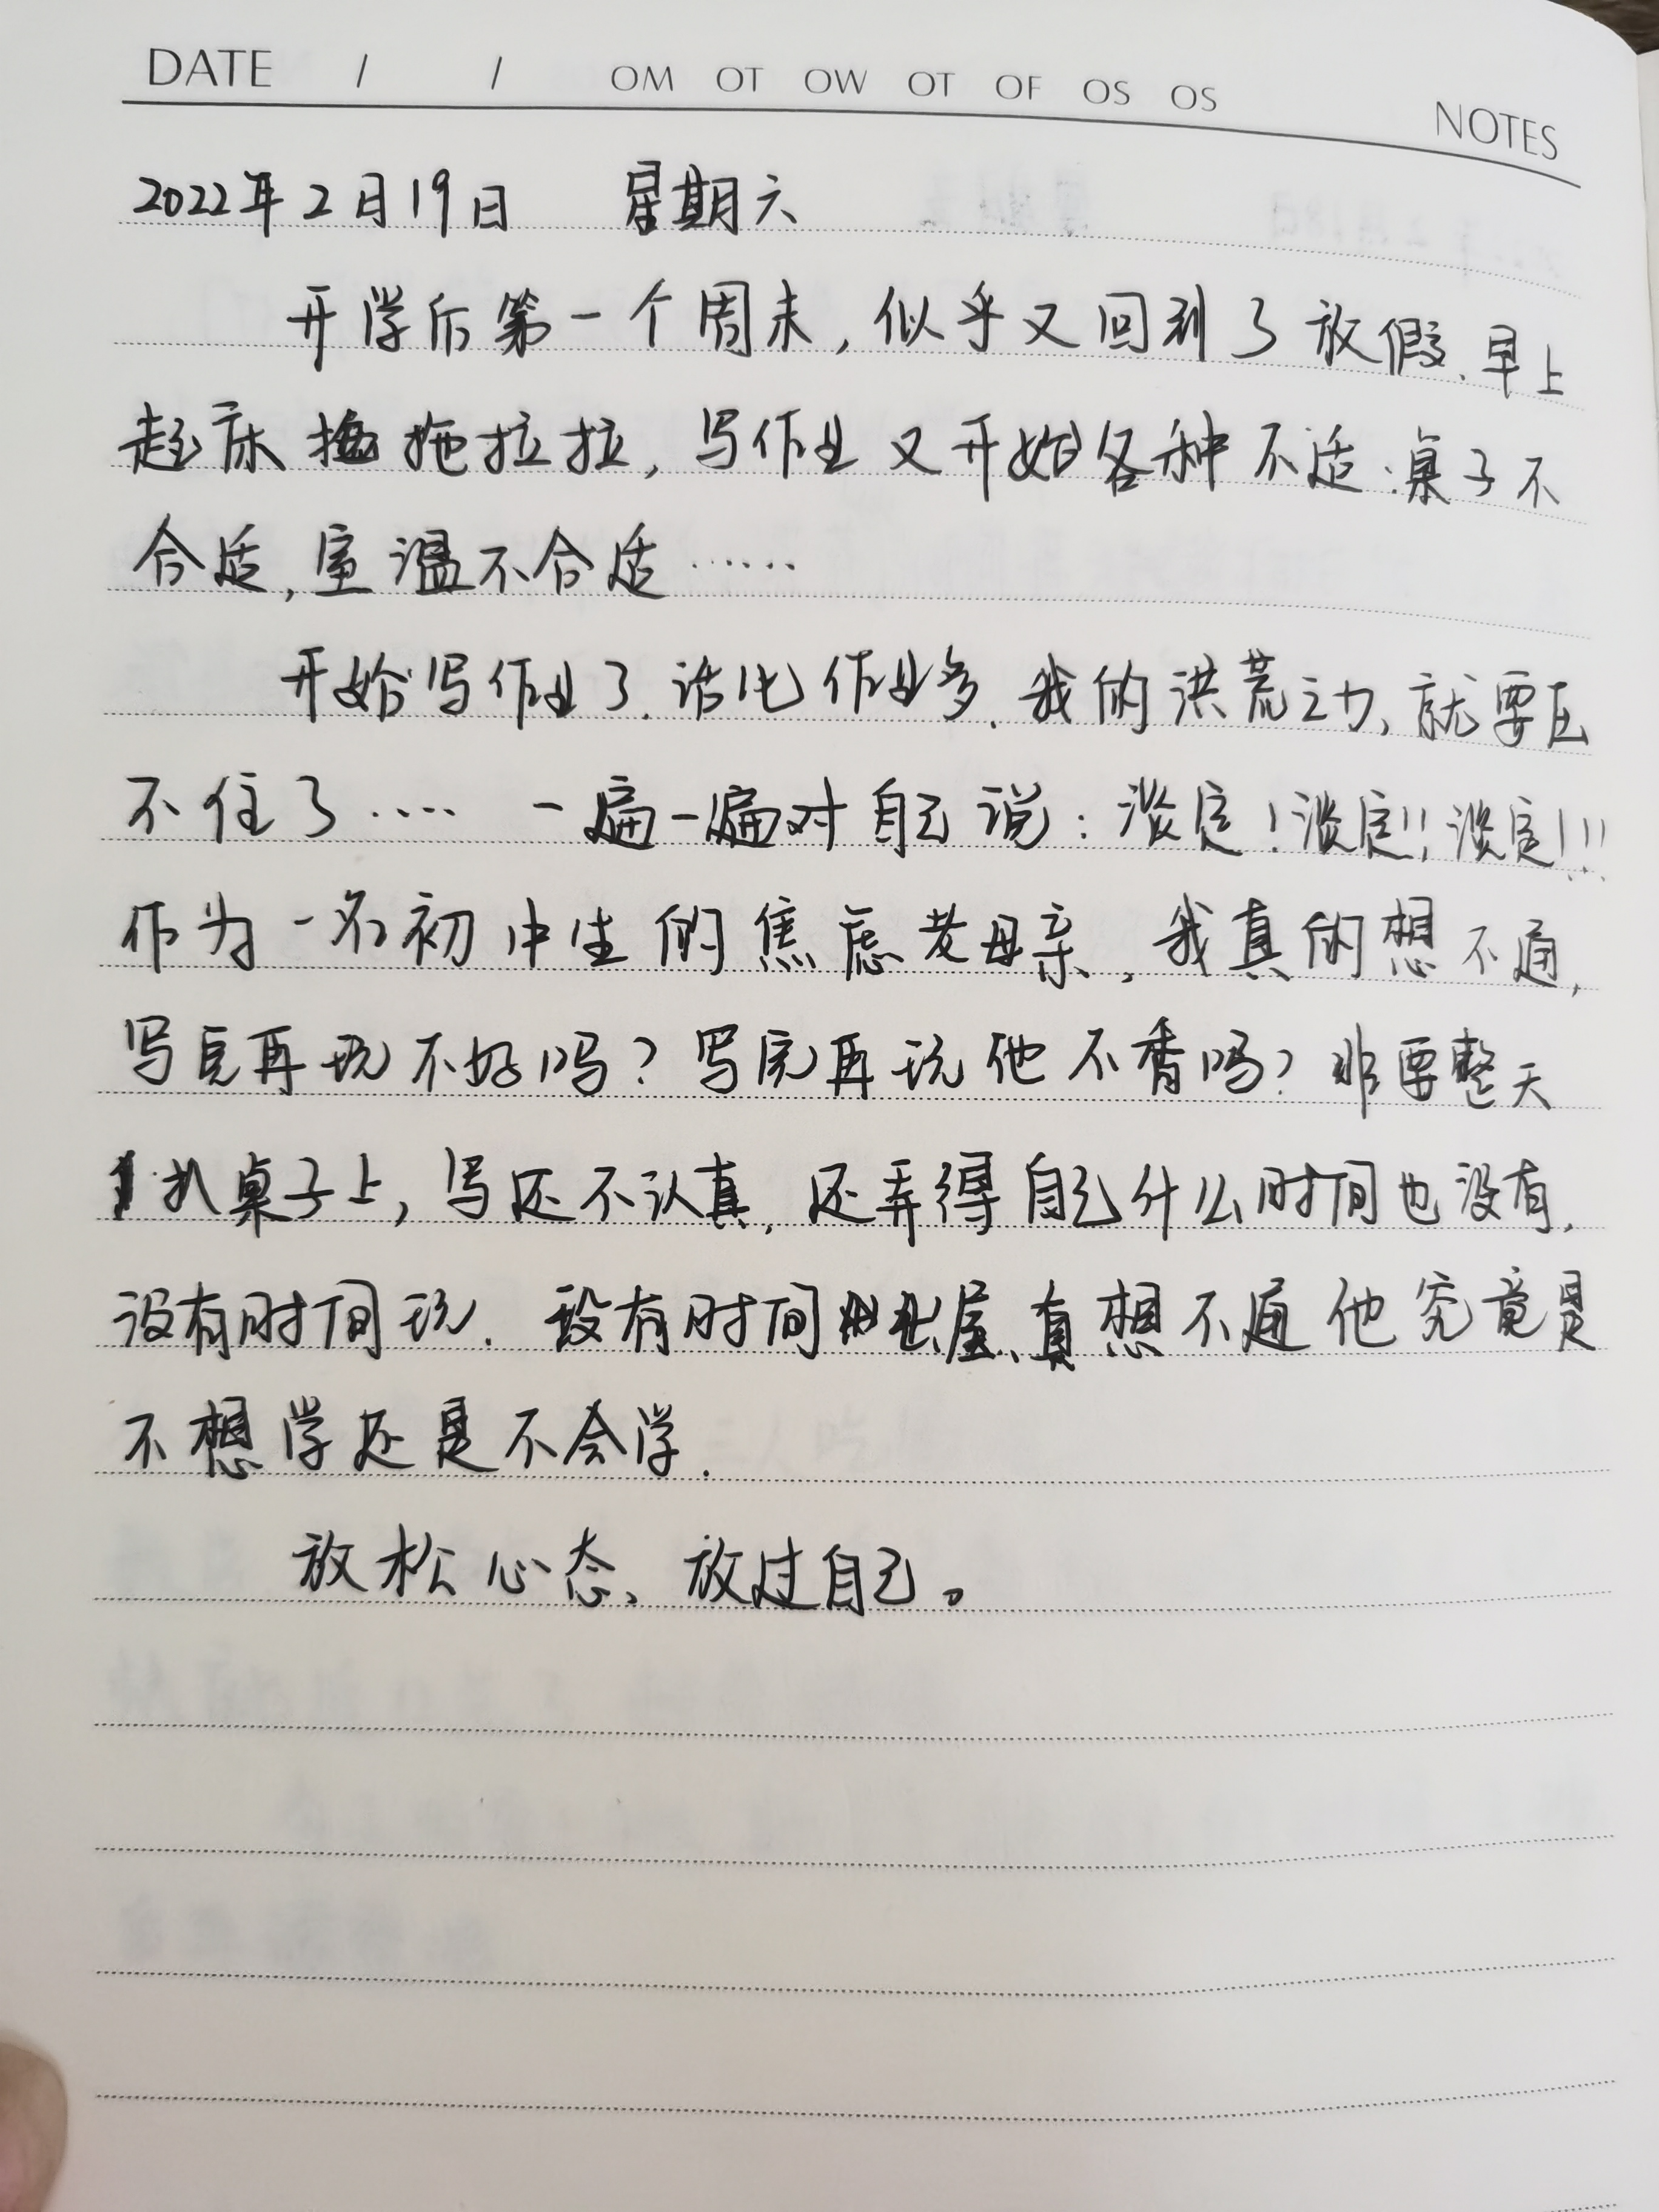 DATE / / OM OT OW OT OF OS OS NOTES
2022年2月19日 星期六
开学后第一个周末,似乎又回到了放假.早上
起床拖拖拉拉,写作业又开始各种不适:桌子不
合适,室温不合适……
开始写作业了.话比作业多.我的洪荒之力,就要压
不住了…… 一遍一遍对自己说:淡定!淡定!!淡定!!!
作为一名初中生的焦虑老母亲,我真的想不通,
写完再玩不好吗?写完再玩他不香吗?非要整天
扒桌子上,写还不认真,还弄得自己什么时间也没有,
没有时间玩.没有时间出屋、真想不通他究竟是
不想学还是不会学.
放松心态、放过自己。